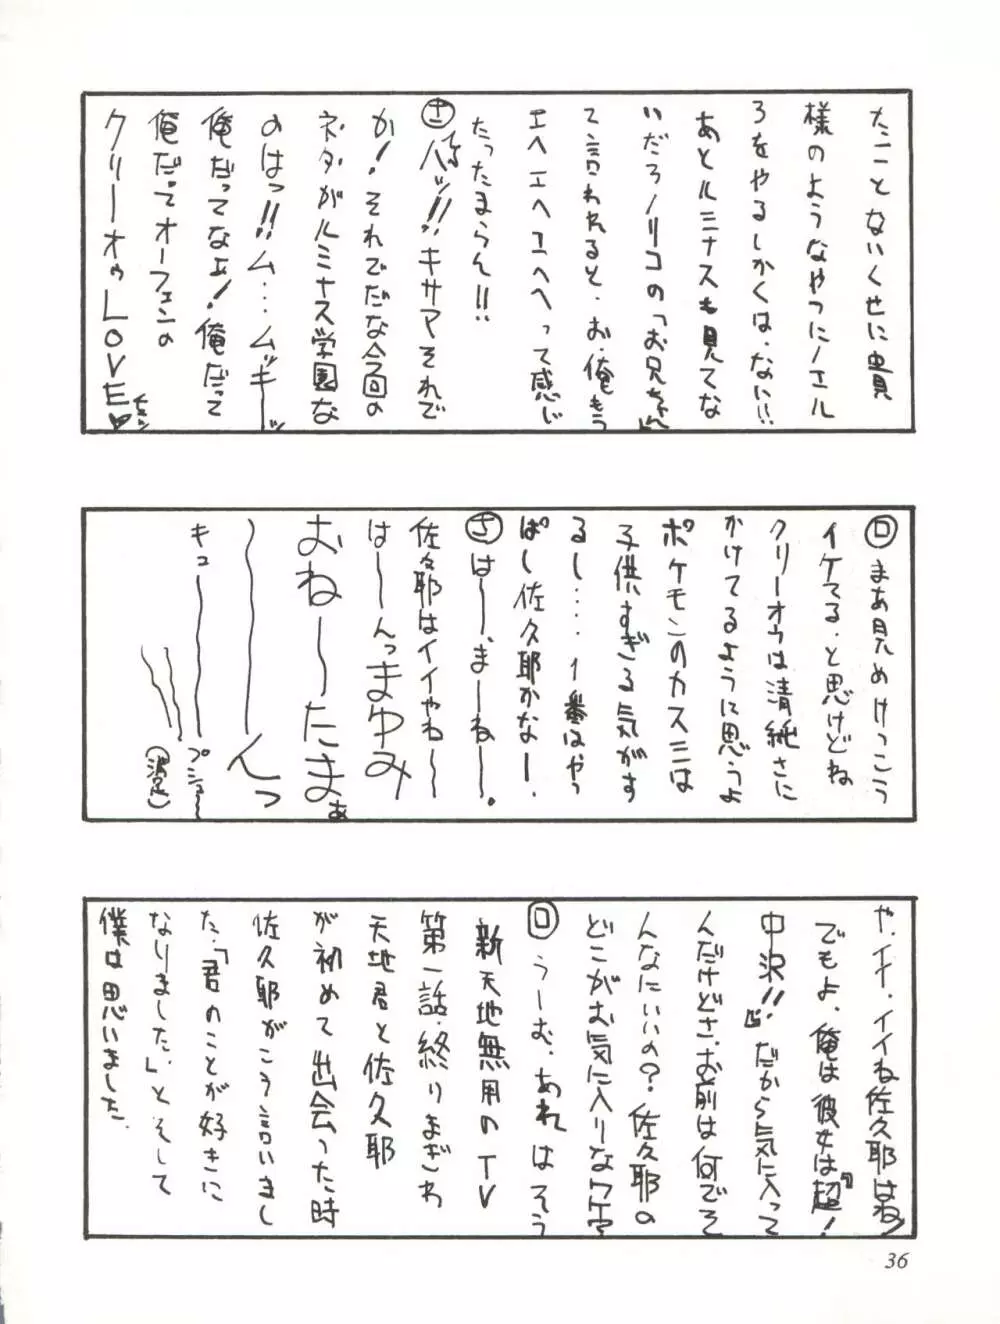 たことないくせに貴
様のようなやつにノエル
ろをやるしかくは、なに!!
あとルミナスも見てな
いだろノリコの「お兄ちゃん」
て言われると、お、俺もう
エヘエヘエヘヘって感じ
たったまらん!!
㋚ハッ!!キサマそれで
か!それでだな今回の
ネタがルミナス学園な
のはっ!!ム…ムッキーッ
俺だってなぁ!俺だって
俺だってオーフェンの
クリーオゥLOVE♥
ロまあ見ためけっこう
イケてる、と思けどね
クリーオウは清純さに
かけてるように思うよ
ポケモンのカスミは
子供すぎる気がす
るし‥‥1番はやっ
ぱし佐久耶かなー、
さは〜、まーね〜。
佐久耶はイイやね〜
は〜んっまゆみ
おね〜たまぁ
〜んっ
キュー〜
プシュー〜
や、イイ、イイね佐久耶はね
でもよ、俺は彼女は『超!
中沢!!』だから気に入って
んだけどさ、お前は何でそ
んなにいいの?佐久耶の
どこがお気に入りなワケ?
ロうーむ、あれはそう
新天地無用のTV
第一話、終りまぎわ
天地君と佐久耶
が初めて出会った時
佐久耶がこう言いまし
た、「君のことが好きに
なりました。」と、そして
僕は思いました、
36